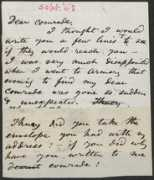 Sept '63
Dear comrade.
I thought I would
write you a few lines to see
if they would reach you —
I was very much disappointed
when I went to Armory that
to find my dear
comrade was gone so sudden
& unexpected.
did you take the
envelope you had with my
address? if you did why
have you written to me
comrade?